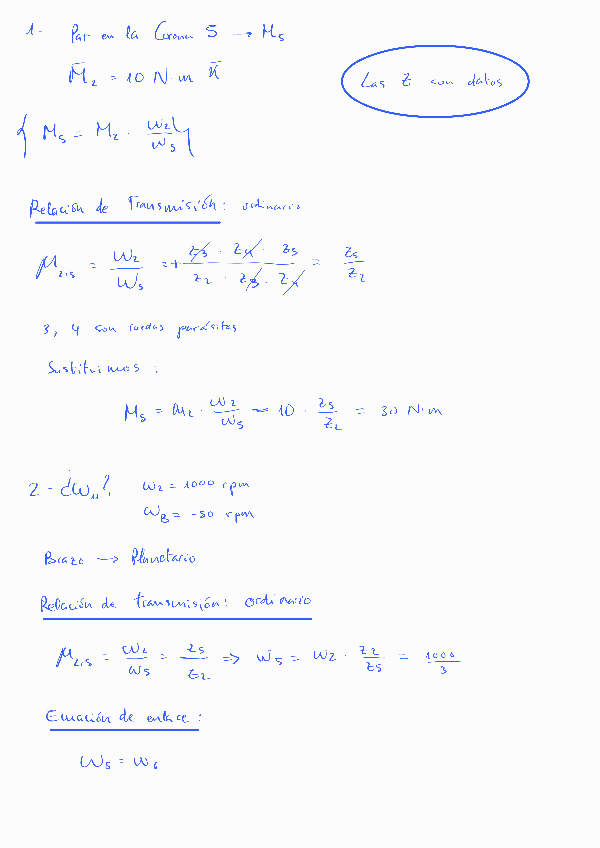 1- Par en la Corona 5 → M₅
M̄₂ = 10 N·m k̄
Las Z son datos
{ M₅ = M₂ · ω₂/ω₅ }
Relación de Transmisión: ordinario
μ₂,₅ = ω₂/ω₅ = + (z₃ · z₄ · z₅)/(z₂ · z₃ · z₄) = z₅/z₂
3, 4 son ruedas parásitas
Sustituimos :
M₅ = M₂ · ω₂/ω₅ = 10 · z₅/z₂ = 30 N·m
2 - ¿ω₁₁? ω₂ = 1000 rpm
ω_B = -50 rpm
Brazo → Planetario
Relación de transmisión: ordinario
μ₂,₅ = ω₂/ω₅ = z₅/z₂ => ω₅ = ω₂ · z₂/z₅ = 1000/3
Ecuación de enlace :
ω₅ = ω₆